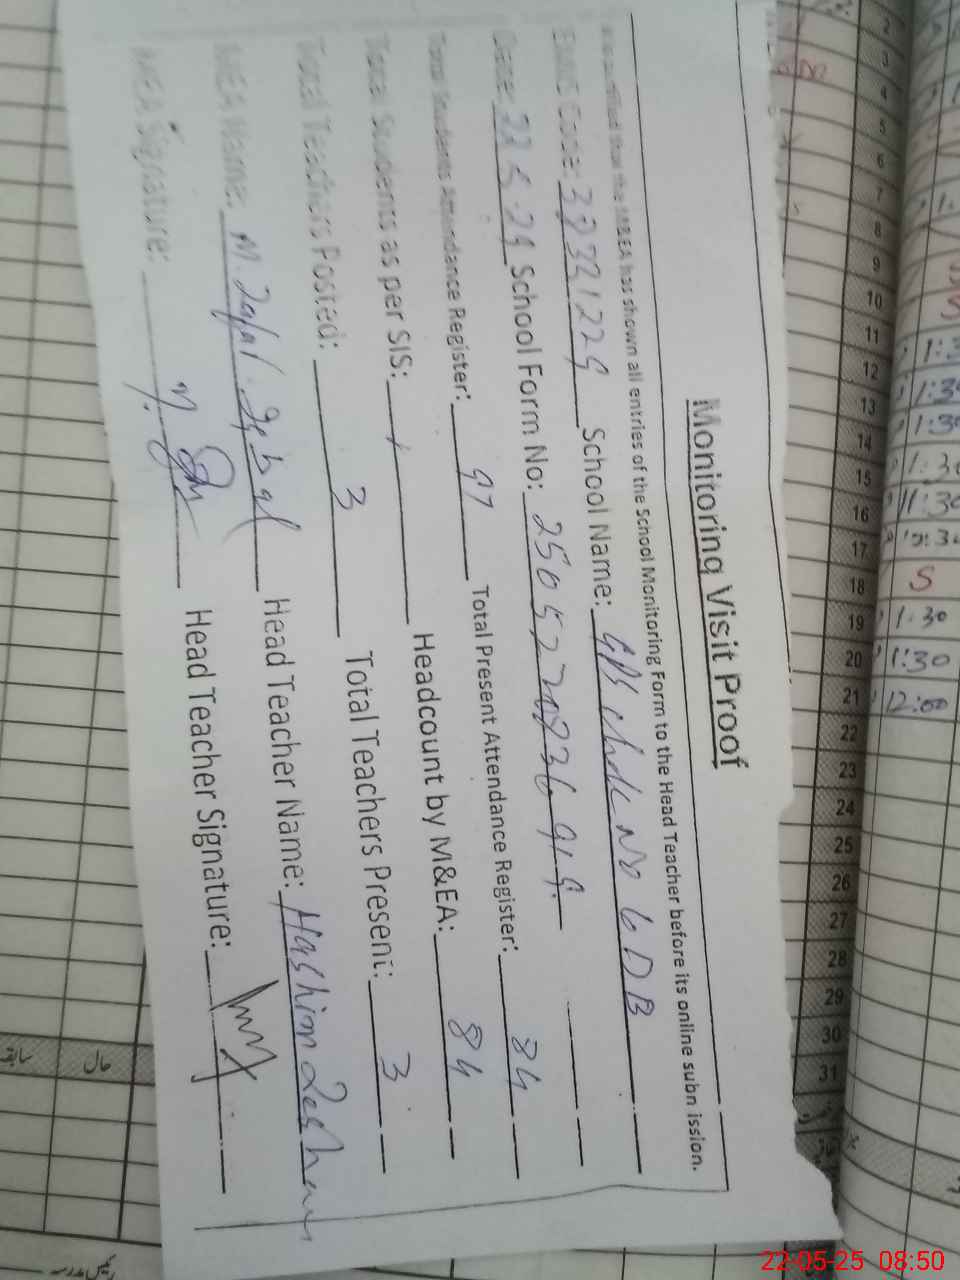 Monitoring Visit Proof
It is certified that the M&EA has shown all entries of the School Monitoring Form to the Head Teacher before its online submission.
EMIS Code: School Name: No 6 DB
Date: School Form No:
Total Students Attendance Register: 97 Total Present Attendance Register: 84
Total Students as per SIS: / Headcount by M&EA: 84
Total Teachers Posted: 3 Total Teachers Present: 3
M&EA Name: M. Zafar Iqbal Head Teacher Name: Hashim Zeshan
M&EA Signature: Head Teacher Signature:
2
3
4
5
6
7
8
9
10
11
12
13
14
15
16
17
18
19
20
21
22
23
24
25
26
27
28
29
30
31
1:30
1:30
1:30
11:30
S
1:30
1:30
12:00
حال
سابقہ
رئیس مدرسہ
22-05-25 08:50